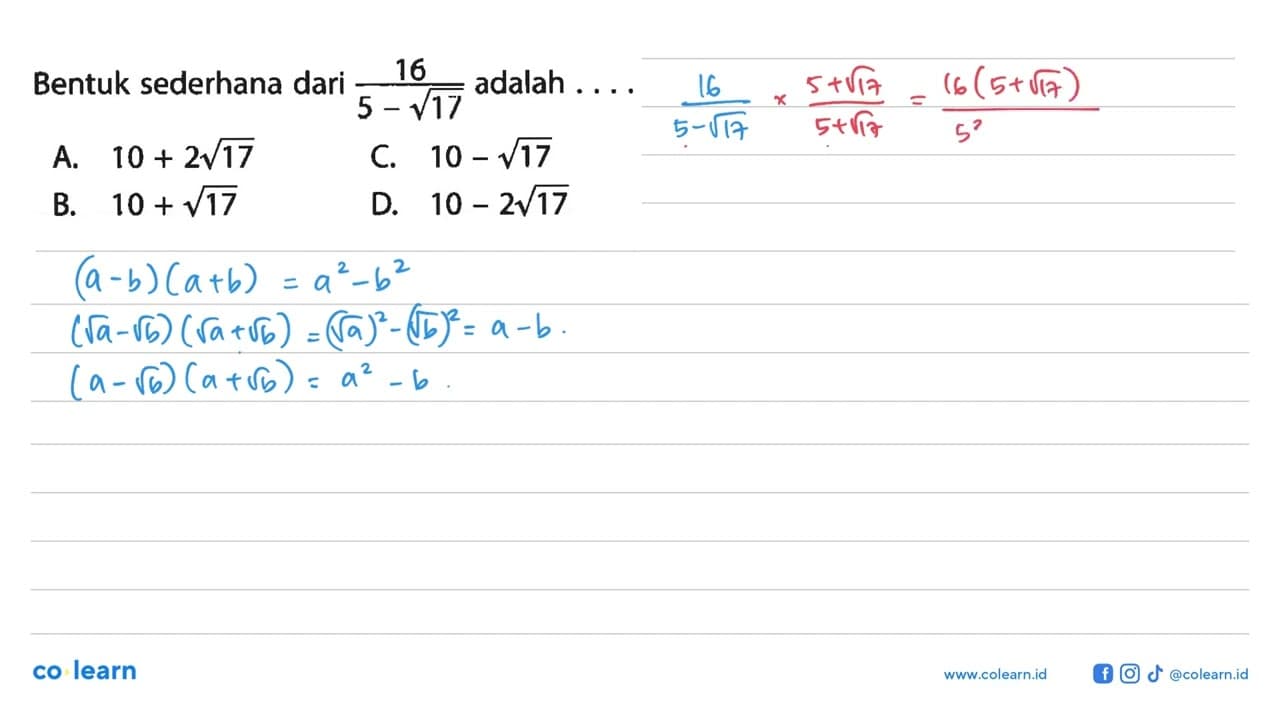 Bentuk sederhana dari 16/(5 - √17) adalah . . . .
A. 10 + 2√17 C. 10 - √17
B. 10 + √17 D. 10 - 2√17
16/(5-√17) × (5+√17)/(5+√17) = 16(5+√17)/5²
(a-b)(a+b) = a²-b²
(√a-√b)(√a+√b) = (√a)²-(√b)² = a-b.
(a-√b)(a+√b) = a² - b.
co learn
www.colearn.id @colearn.id